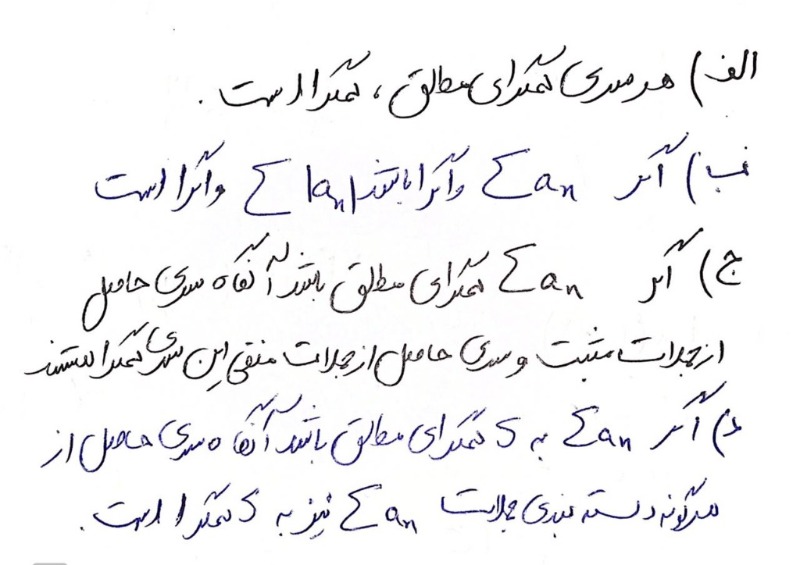 الف) هر سری همگرای مطلق، همگرا است.
ب) اگر ∑aₙ واگرا باشد ∑|aₙ| واگرا است
ج) اگر ∑aₙ همگرای مطلق باشد آنگاه سری حاصل
از جملات مثبت و سری حاصل از جملات منفی این سری همگرا هستند
د) اگر ∑aₙ به S همگرای مطلق باشد آنگاه سری حاصل از
هرگونه دسته بندی جملات ∑aₙ نیز به S همگرا است.